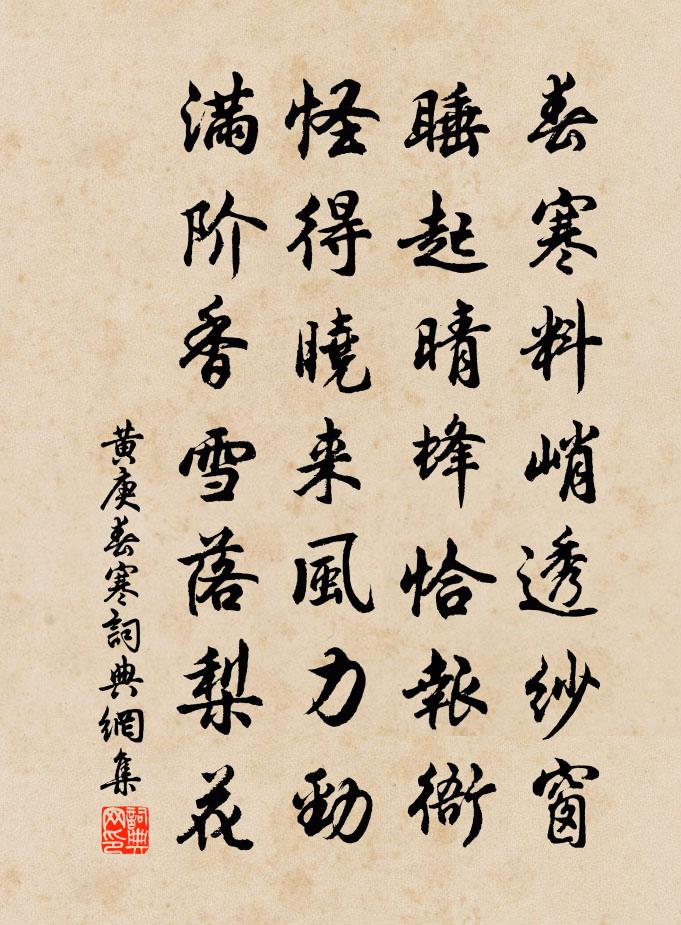 春寒料峭透纱窗
睡起晴蜂恰报衙
怪得曉来風力勁
满阶香雪落梨花
黄庚春寒詞典網集
詞典网印